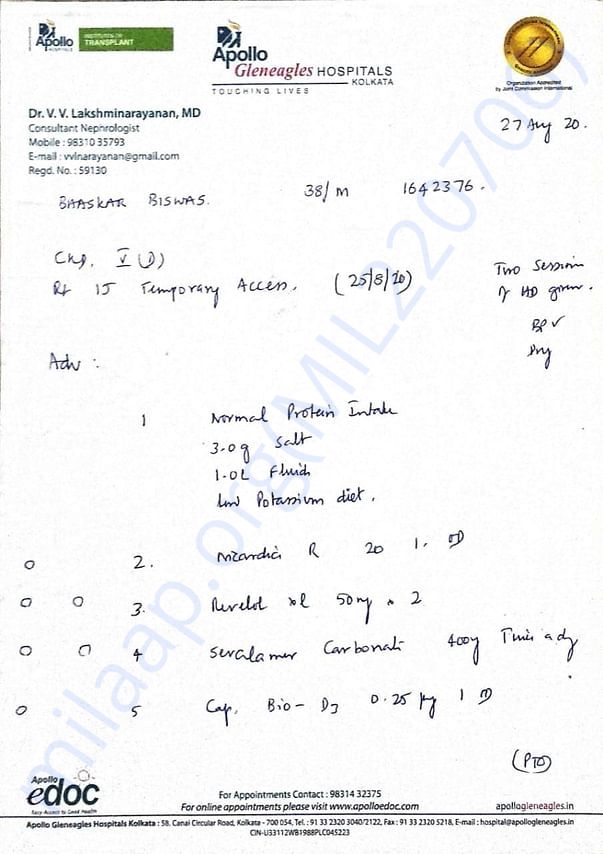 Apollo
HOSPITALS
INSTITUTES OF
TRANSPLANT
Apollo
Gleneagles HOSPITALS
KOLKATA
TOUCHING LIVES
Organization Accredited
by Joint Commission International
Dr. V. V. Lakshminarayanan, MD
Consultant Nephrologist
Mobile : 98310 35793
E-mail : vvlnarayanan@gmail.com
Regd. No. : 59130
27 Aug 20.
BHASKAR BISWAS. 38/M 1642376.
CKD. V (D)
Rt IJ Temporary Access. (25/8/20)
Two Session
of HD given.
BP ✓
Adv :
1 Normal Protein Intake
3.0g Salt
1.0L Fluid
Low Potassium diet.
2. Nicardia R 20 1. OD
3. Revelol xl 50mg x 2
4 Sevelamer Carbonate 400mg
5 Cap. Bio-D3 0.25 µg 1 D
(PTO)
Apollo
edoc
Easy Access to Good Health
For Appointments Contact : 98314 32375
For online appointments please visit www.apolloedoc.com
apollogleneagles.in
Apollo Gleneagles Hospitals Kolkata : 58, Canal Circular Road, Kolkata - 700 054, Tel. : 91 33 2320 3040/2122, Fax : 91 33 2320 5218, E-mail : hospital@apollogleneagles.in
CIN-U33112WB1988PLC045223
milaap.org(MIL220700)